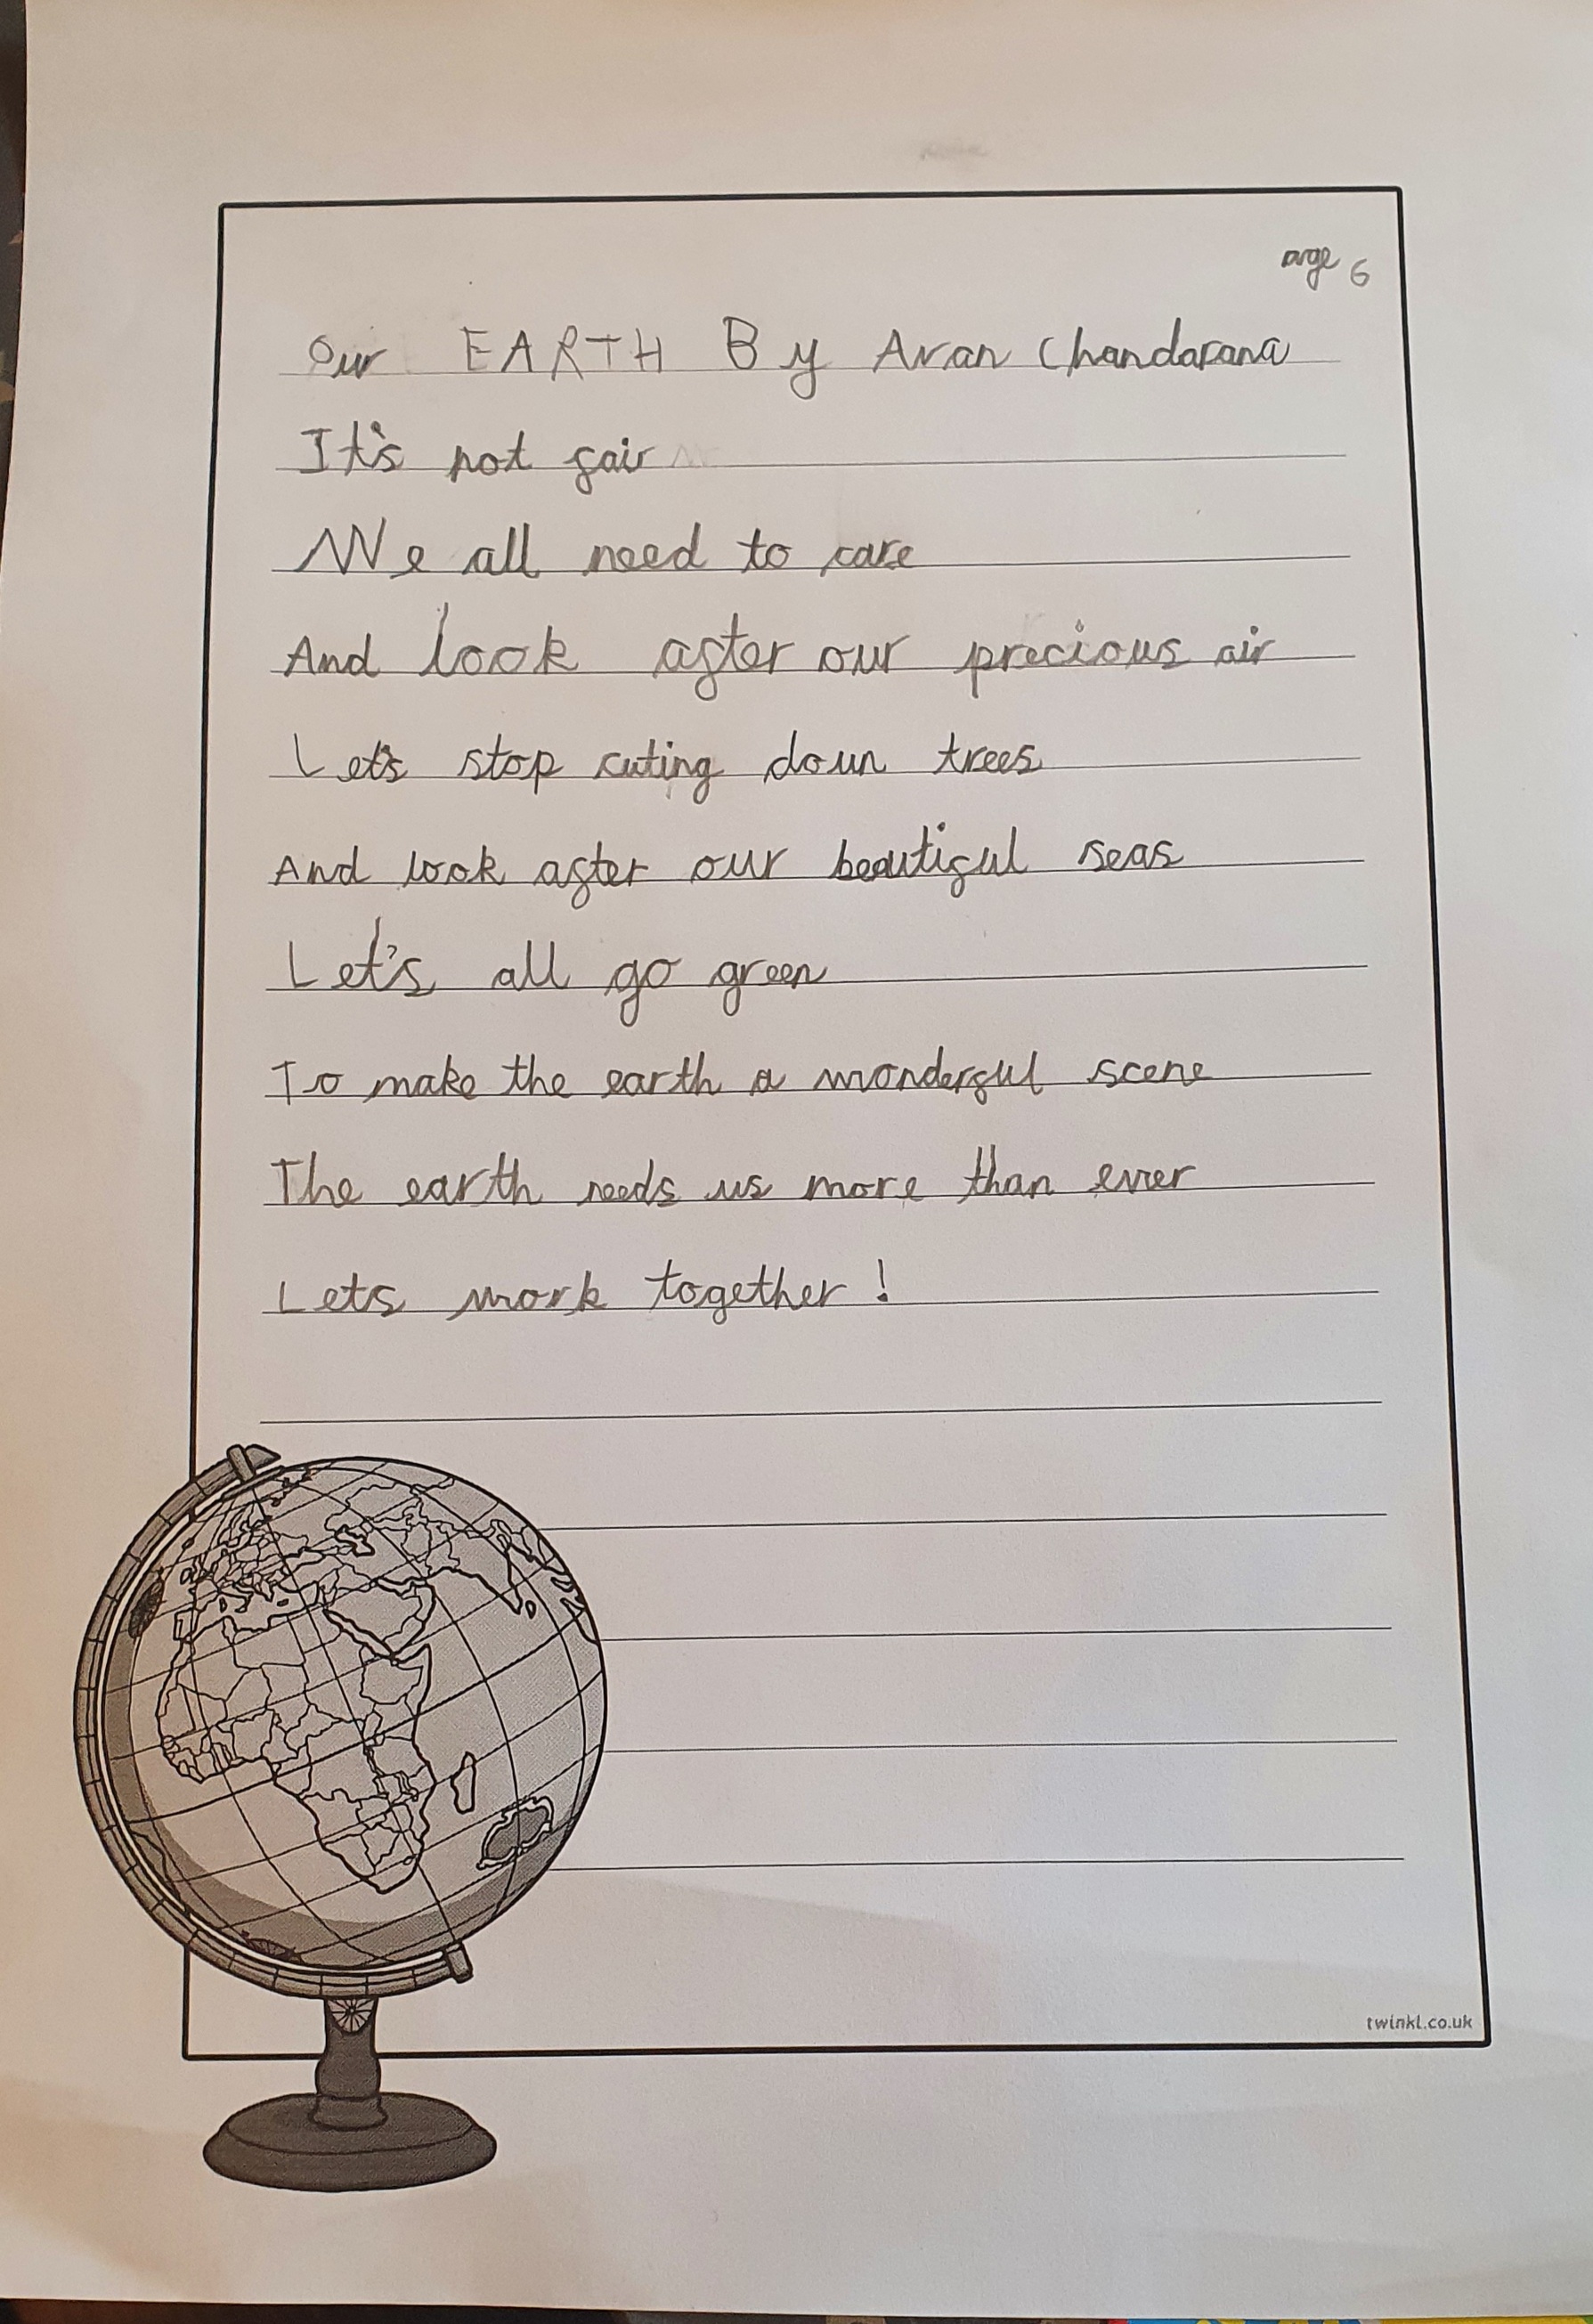 age 6
Our EARTH By Avan Chandarana
It's not fair
We all need to care
And look after our precious air
Let's stop cuting down trees
And look after our beautiful seas
Let's all go green
To make the earth a wonderful scene
The earth needs us more than ever
Lets work together!
twinkl.co.uk